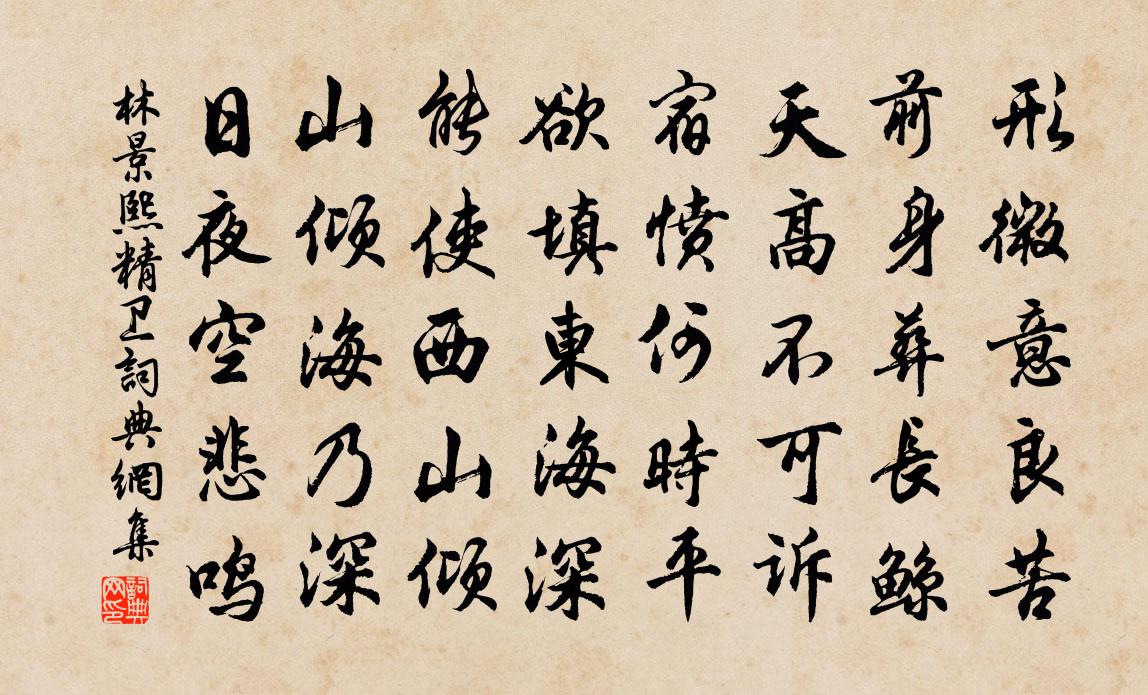 形微意良苦
前身葬長鲸
天高不可诉
宿愤何時平
欲填東海深
能使西山倾
山倾海乃深
日夜空悲鸣
林景熙精卫詞典網集
詞典
网印